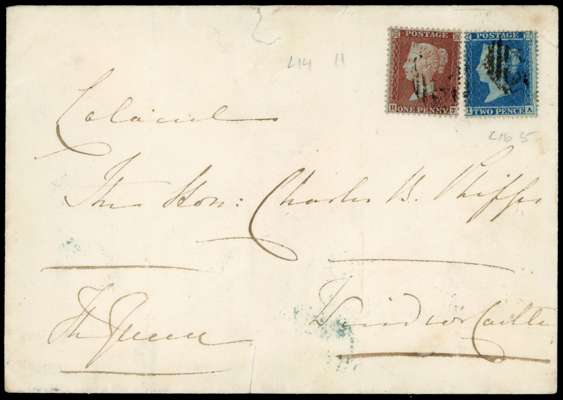 POSTAGE POSTAGE
ONE PENNY TWO PENCE
L14 11
L16 5
Colonel
The Hon: Charles B. Phipps
The Queen Windsor Castle